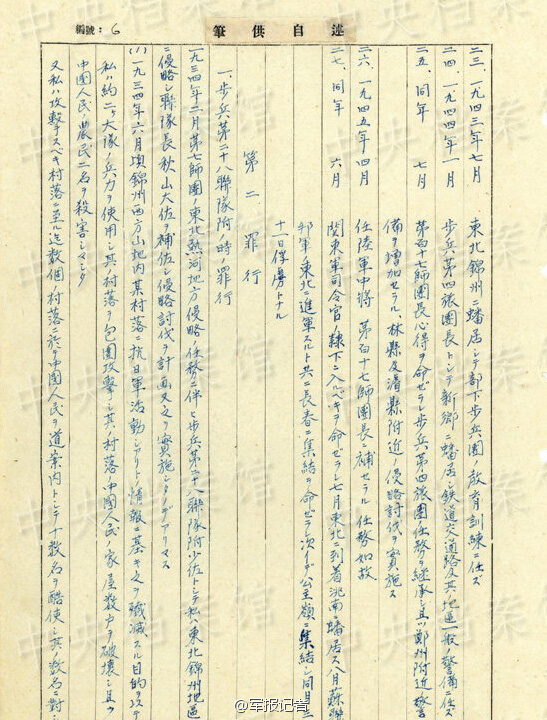 編號: 6
筆供自述
二三、一九四三年七月 東北錦州ニ蟠居シテ部下歩兵團ノ教育訓練ニ任ズ
二四、一九四四年一月 歩兵第四旅團長トシテ新鄉ニ蟠居シ鉄道交通路及其ノ地區一般ノ警備ニ任ズ
二五、同年 七月 第百十七師團長心得ヲ命ゼラレ歩兵第四旅團任務ヲ継承シ且ツ鄭州附近警
備ヲ増加セラル、林縣及濬縣附近ノ侵略討伐ヲ実施ス
二六、一九四五年四月 任陸軍中將 第百十七師團長ニ補セラル 任務如故
二七、同年 六月 関東軍司令官ノ隷下ニ入ルベキヲ命ゼラレ七月東北ニ到着洮南ニ蟠居ス八月蘇聯
邦軍ノ東北進軍スルト共ニ長春ニ集結ヲ命ゼラレ次イデ公主嶺ニ集結シ同月三
十一日俘虜トナル
第二 罪行
一、歩兵第二十八聯隊附ノ時ノ罪行
一九三四年二月第七師團ノ東北熱河地方侵略ノ任務ニ伴ヒ歩兵第二十八聯隊附少佐トシテ私ハ東北錦州地區
ニ侵略シ聯隊長秋山大佐ヲ補佐シ侵略討伐ヲ計画又之ヲ実施シタノデアリマス
(1)一九三四年六月頃錦州西方山地内某村落ニ抗日軍活動シアリトノ情報ニ基キ之ヲ殲滅スル目的ヲ以テ
私ハ約二ケ大隊ノ兵力ヲ使用シ其ノ村落ヲ包圍攻撃シ其ノ村落ノ中國人民ノ家屋数カヲ破壊シ且ツ
中國人民農民二名ヲ殺害シマシタ
又私ハ攻撃スベキ村落ニ至ル迄数個ノ村落ニ於テ中國人民ヲ道案内トシテ十数名ヲ酷使シ其ノ数名ニ対シ
中央档案馆
@军报记者